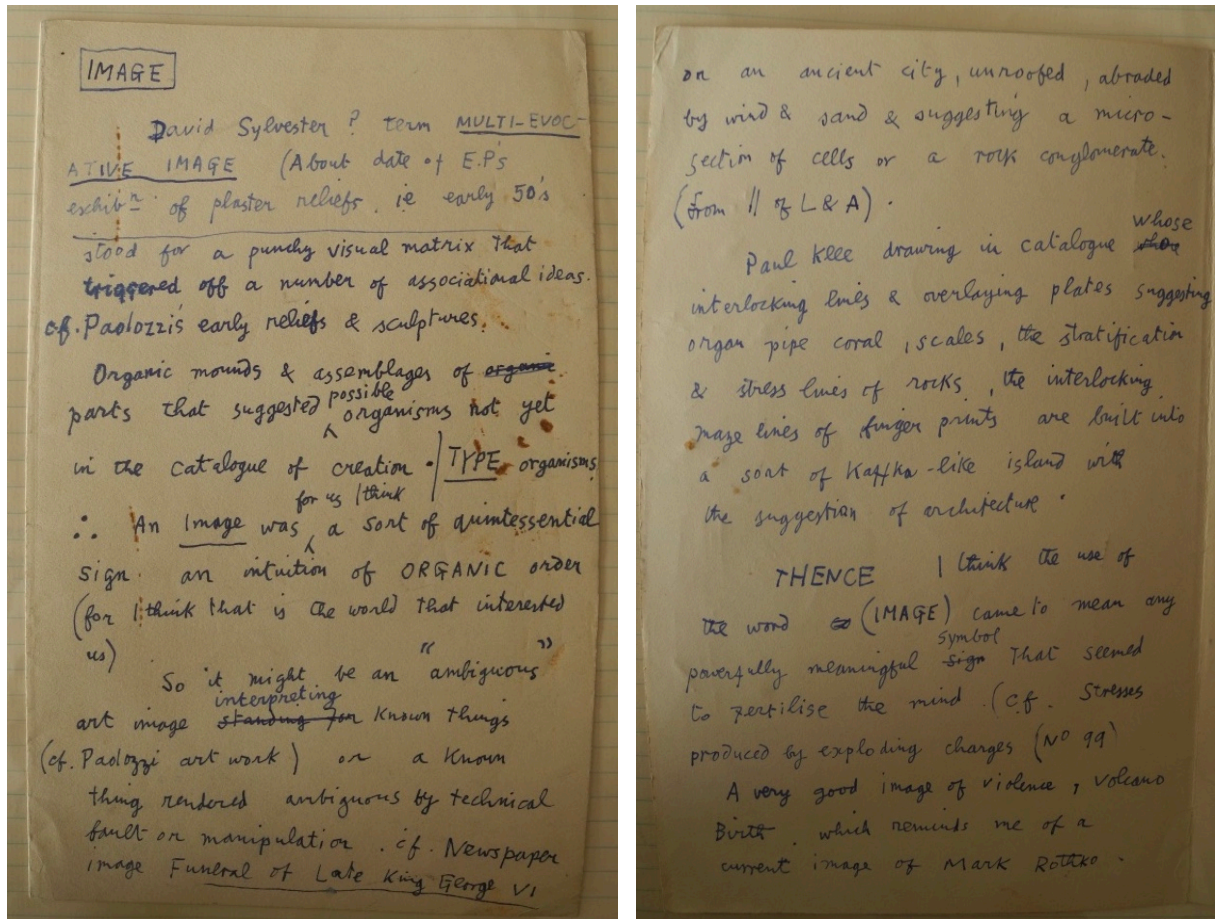 IMAGE
David Sylvester ? term MULTI-EVOC-
ATIVE IMAGE (About date of E.P's
exhibn. of plaster reliefs. ie early 50's
stood for a punchy visual matrix that
triggered off a number of associational ideas.
cf. Paolozzi's early reliefs & sculptures.
Organic mounds & assemblages of organic
parts that suggested possible organisms not yet
in the catalogue of creation. | TYPE organisms
∴ An Image was for us I think a sort of quintessential
sign. an intuition of ORGANIC order
(for I think that is the world that interested
us)
So it might be an "ambiguous"
art image standing for interpreting known things
(cf. Paolozzi art work) or a known
thing rendered ambiguous by technical
fault or manipulation. cf. Newspaper
image Funeral of Late King George VI
or an ancient city, unroofed, abraded
by wind & sand & suggesting a micro-
section of cells or a rock conglomerate.
(from || of L & A).
Paul Klee drawing in catalogue whose
interlocking lines & overlaying plates suggesting
organ pipe coral, scales, the stratification
& stress lines of rocks, the interlocking
maze lines of finger prints are built into
a sort of Kaffka-like island with
the suggestion of architecture.
THENCE I think the use of
the word (IMAGE) came to mean any
powerfully meaningful sign symbol that seemed
to fertilise the mind. (cf. Stresses
produced by exploding charges (No 99)
A very good image of violence, volcano
Birth. which reminds me of a
current image of Mark Rothko.